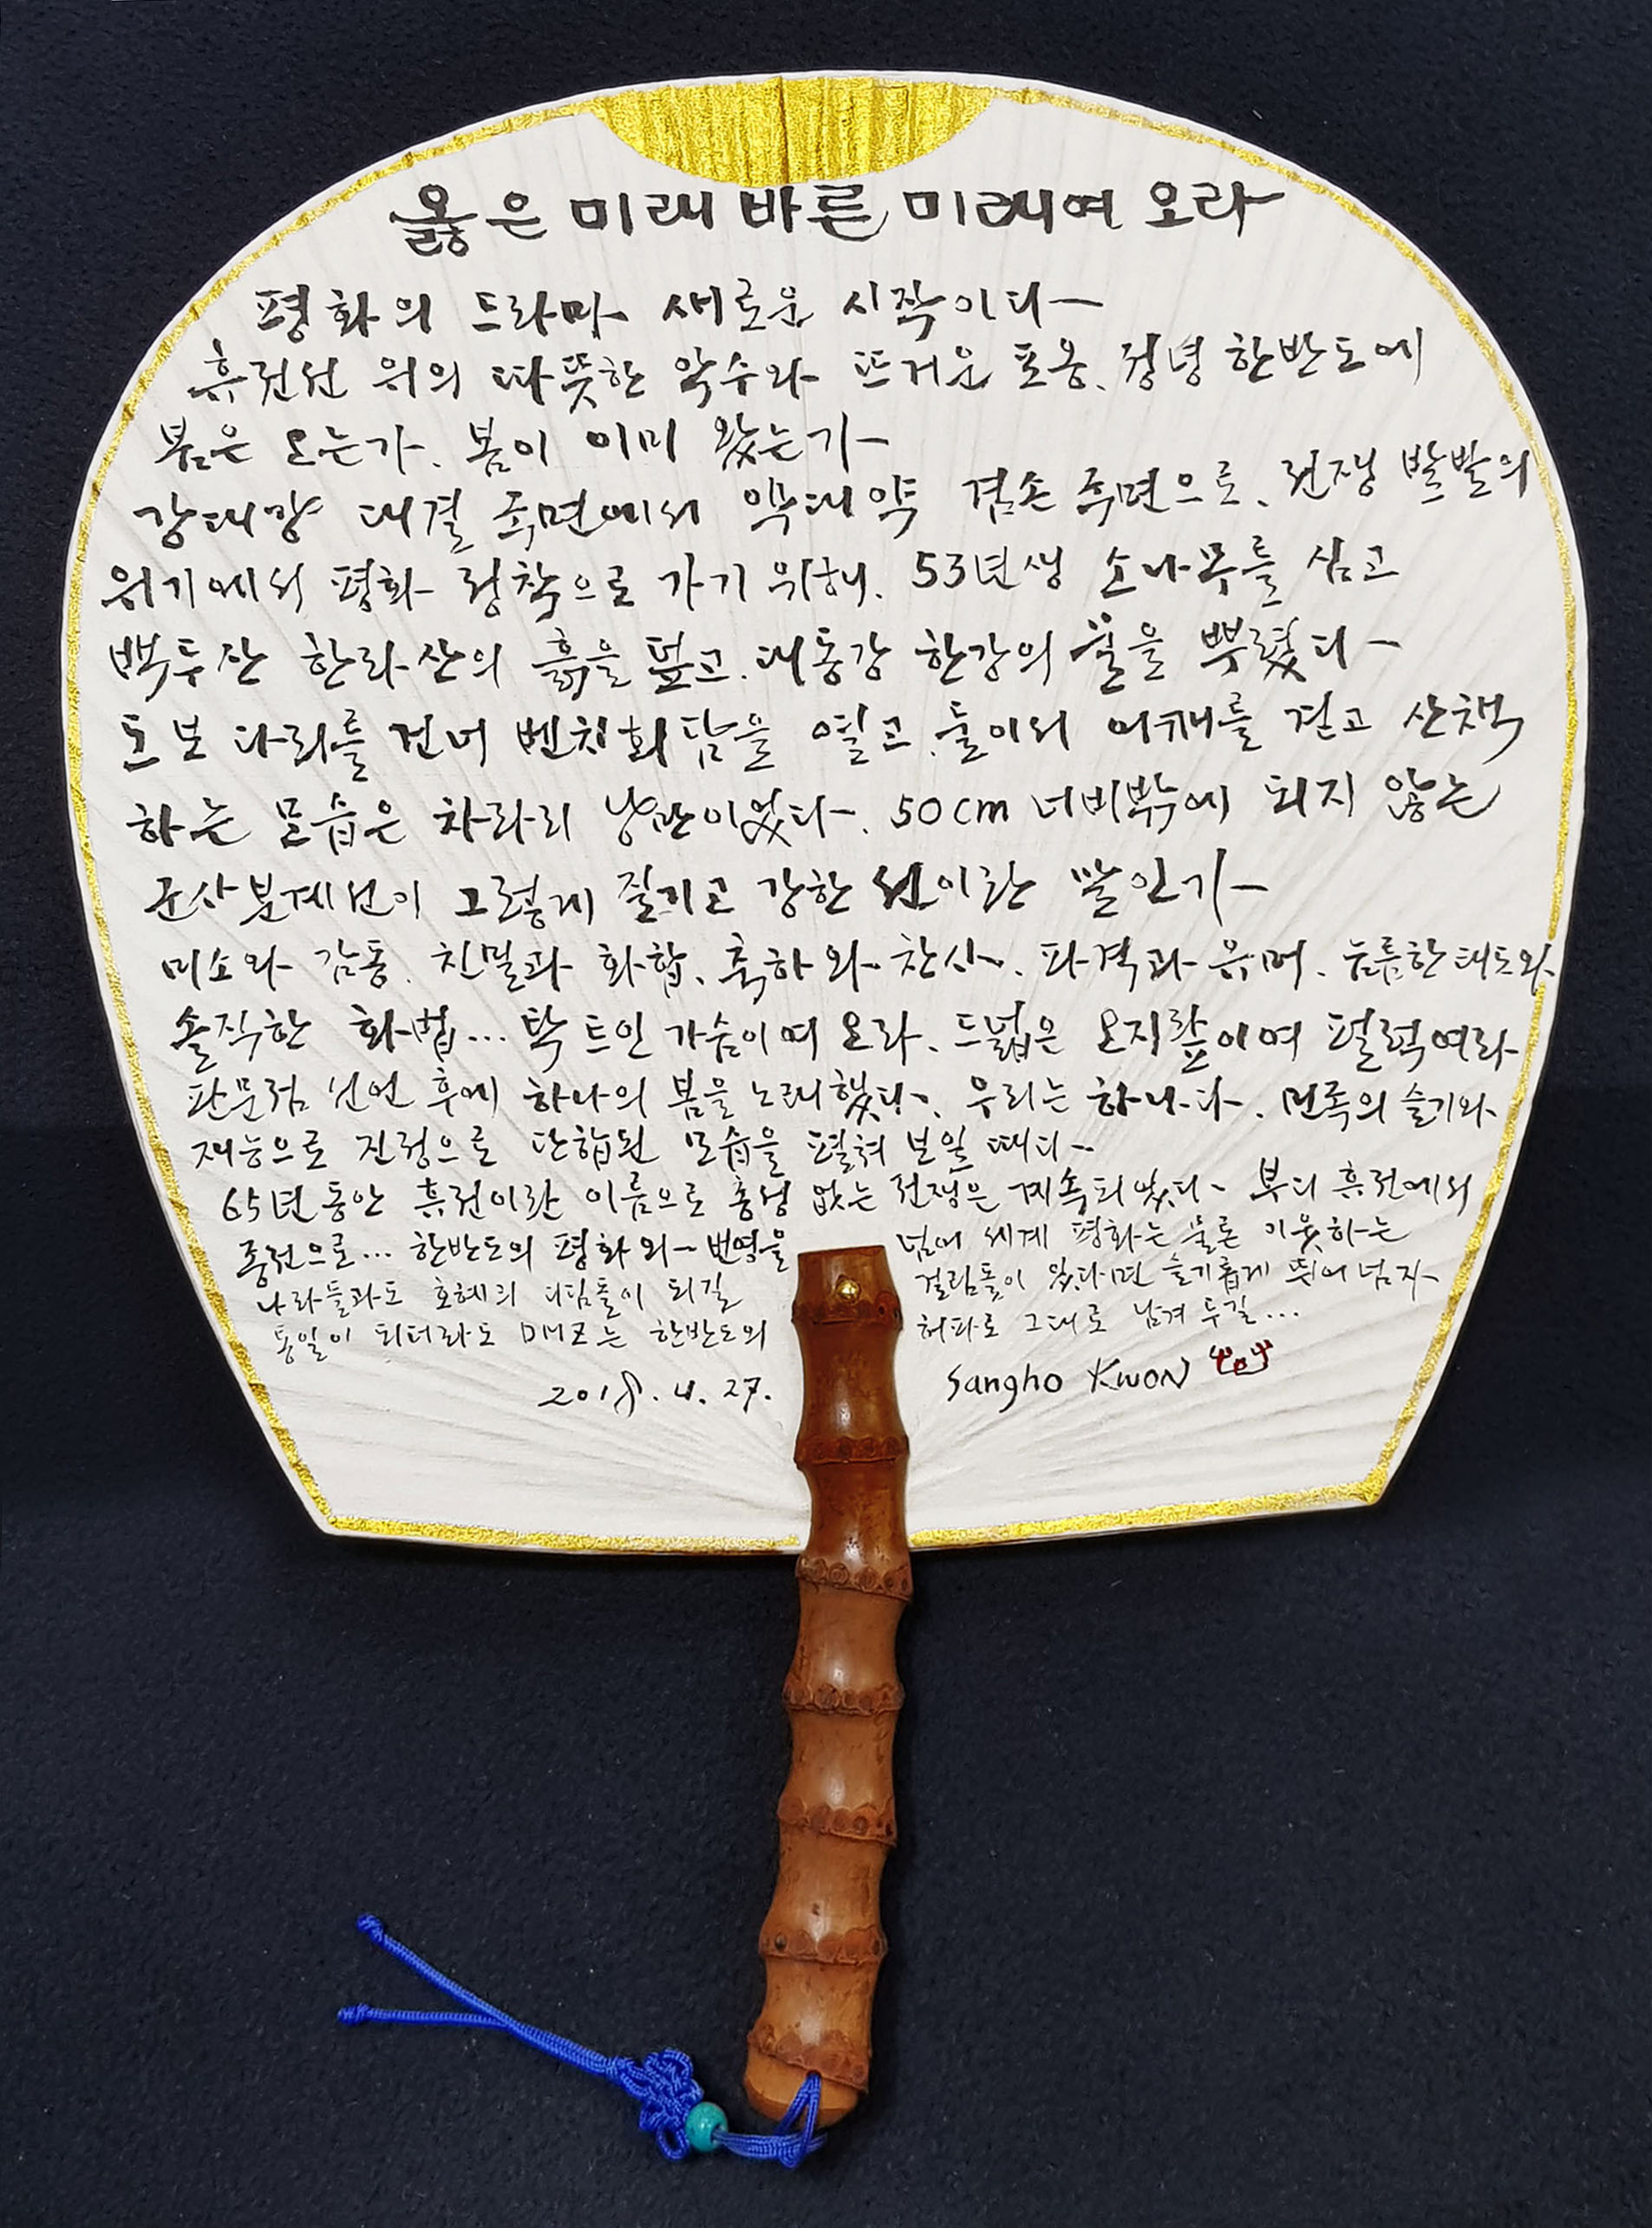 옳은 미래 바른 미래여 오라
평화의 드라마 새로운 시작이다
휴전선 위의 따뜻한 악수와 뜨거운 포옹. 정녕 한반도에
봄은 오는가. 봄이 이미 왔는가
강대강 대결 국면에서 약대약 겸손 국면으로. 전쟁 발발의
위기에서 평화 정착으로 가기 위해. 53년생 소나무를 심고
백두산 한라산의 흙을 덮고. 대동강 한강의 물을 뿌렸다
도보 다리를 건너 벤치회담을 열고. 둘이서 어깨를 걷고 산책
하는 모습은 차라리 낭만이었다. 50cm 너비밖에 되지 않는
군사분계선이 그렇게 질기고 강한 선이란 말인가
미소와 감동. 친밀과 화합. 축하와 찬사. 파격과 유머. 늠름한 태도와
솔직한 화법... 탁 트인 가슴이여 오라. 드넓은 오지랖이여 펄럭여라
판문점 선언 후에 하나의 봄을 노래했다. 우리는 하나다. 민족의 슬기와
재능으로 진정으로 단합된 모습을 펼쳐 보일 때다
65년 동안 휴전이란 이름으로 총성 없는 전쟁은 계속되었다 부디 휴전에서
종전으로... 한반도의 평화와 번영을 넘어 세계 평화는 물론 이웃하는
나라들과도 호혜의 디딤돌이 되길 걸림돌이 있다면 슬기롭게 뛰어넘자
통일이 되더라도 DMZ는 한반도의 허파로 그대로 남겨 두길...
2018. 4. 27. Sangho Kwon